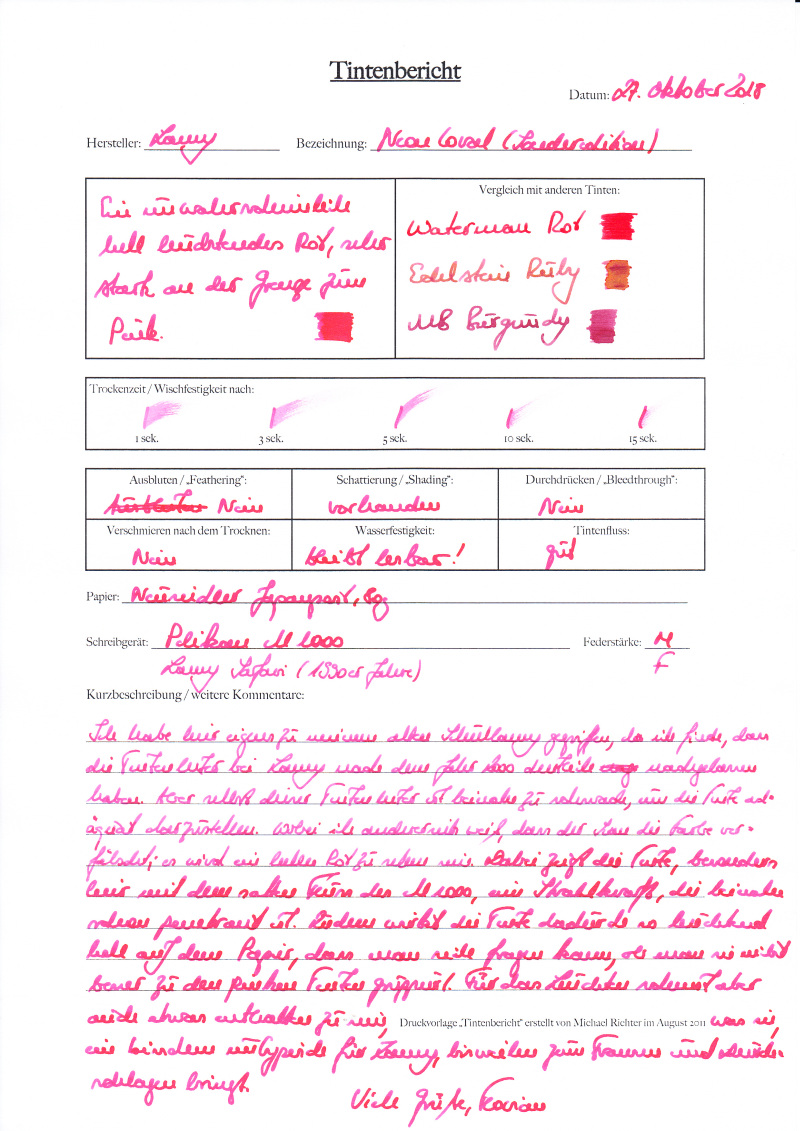 Tintenbericht
Datum: 27. Oktober 2018
Hersteller: Lamy Bezeichnung: Neon Coral (Sonderedition)
Ein unwahrscheinlich
hell leuchtendes Rot, sehr
stark an der Grenze zum
Pink.
Vergleich mit anderen Tinten:
Waterman Rot
Edelstein Ruby
MB Burgundy
Trockenzeit / Wischfestigkeit nach:
1 sek. 3 sek. 5 sek. 10 sek. 15 sek.
Ausbluten / „Feathering": Schattierung / „Shading": Durchdrücken / „Bleedthrough":
Nein vorhanden Nein
Verschmieren nach dem Trocknen: Wasserfestigkeit: Tintenfluss:
Nein bleibt lesbar! gut
Papier: Neusiedler Japanpost, 80g
Schreibgerät: Pelikan M 1000 Federstärke: M
Lamy Safari (1990er Jahre) F
Kurzbeschreibung / weitere Kommentare:
Ich habe hier eigens zu meinem alten Schullamy gegriffen, da ich finde, dass
die Tintenleiter bei Lamy nach dem Jahr 2000 deutlich nachgelassen
haben. Aber selbst dieser Tintenleiter ist beinahe zu schwach, um die Tinte ad-
äquat darzustellen. Wobei ich andererseits weiß, dass der Scan die Farbe ver-
fälscht; es wird ein helles Rot zu sehen sein. Dabei zeigt die Tinte, besonders
hier mit dem satten Fluss des M 1000, eine Strahlkraft, die beinahe
schon penetrant ist. Zudem wirkt die Tinte dadurch so leuchtend
hell auf dem Papier, dass man sich fragen kann, ob man sie nicht
besser zu den pinken Tinten gruppiert. Für das Leuchten scheint aber
auch etwas enthalten zu sein, Druckvorlage „Tintenbericht" erstellt von Michael Richter im August 2011 was sie,
ein bisschen untypisch für Lamy, bisweilen zum und
schlagen bringt.
Viele Grüße, Florian